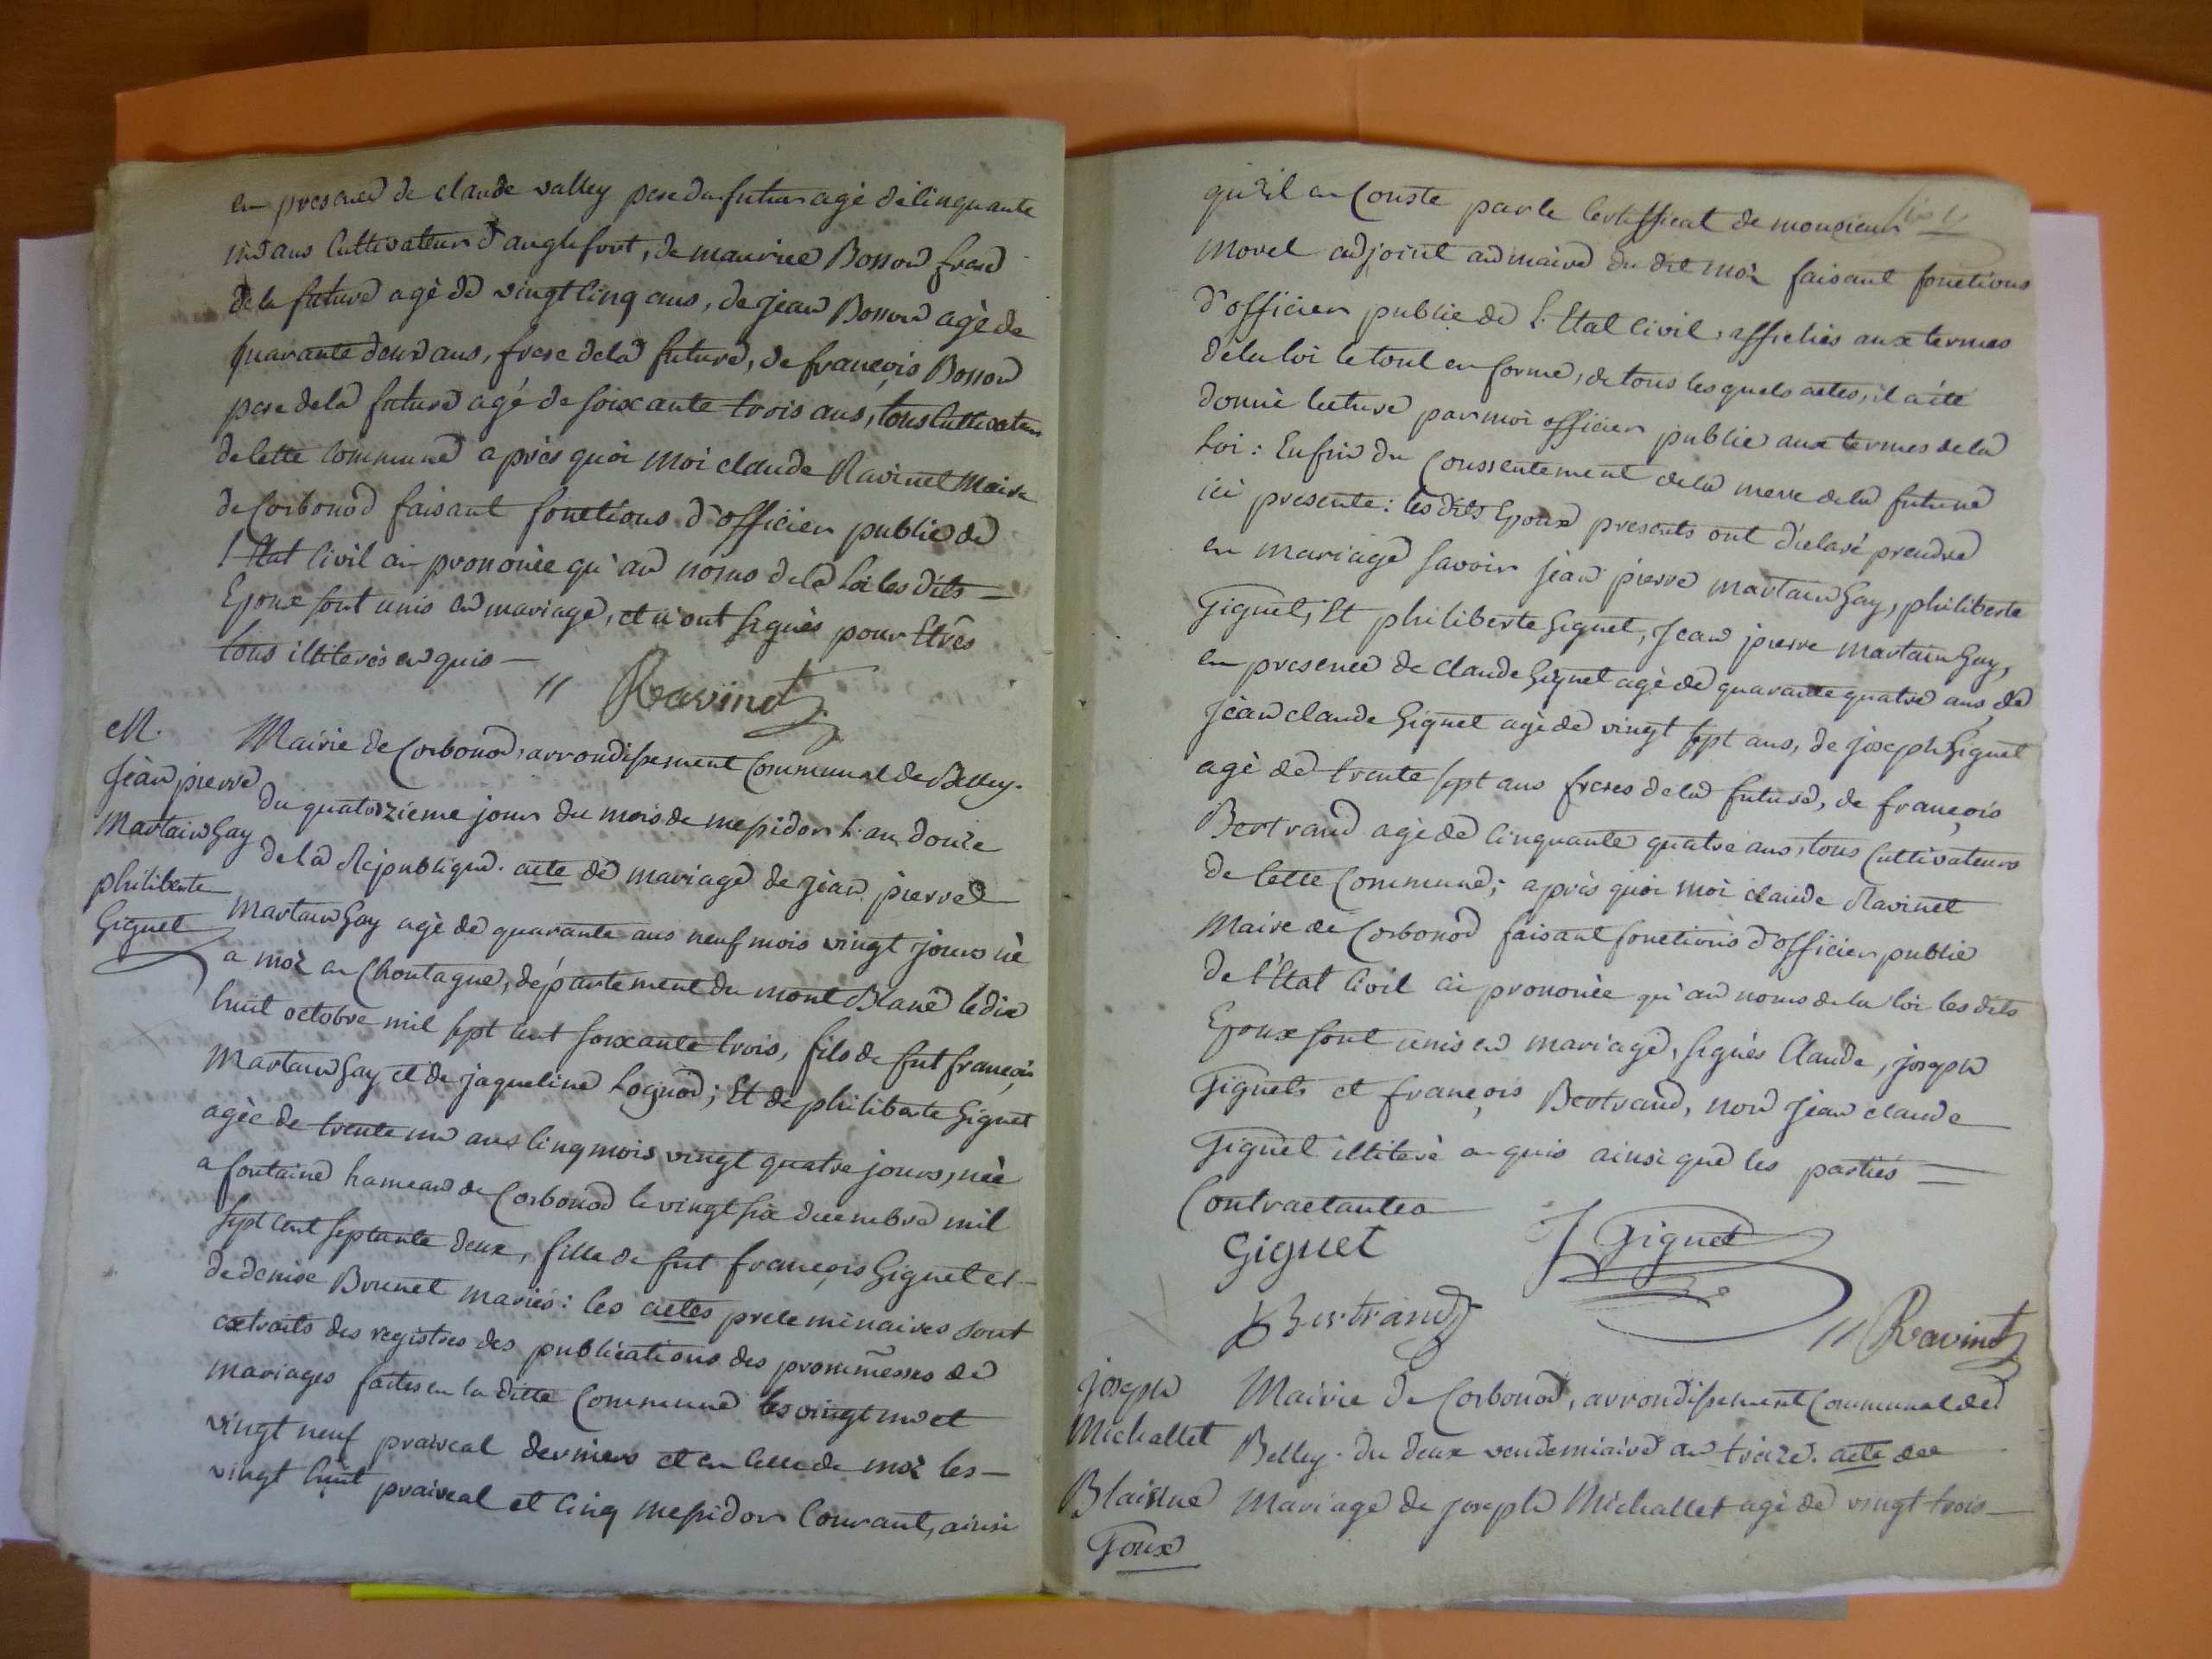 en presence de claude valley pere du futur agé de Cinquante
un ans Cultivateur d'anglefort, de maurice Bosson frere
de la future agé de vingt Cinq ans, de jean Bosson agé de
quarante deux ans, frere de la future, de françois Bosson
pere de la future agé de soixante trois ans, tous Cultivateurs
de Cette Commune après quoi moi claude Ravinet Maire
de Corbonod faisant fonctions d'officier public de
l'Etat Civil ai prononcée qu'au noms de la Loi les dits —
Epoux sont unis en mariage, et n'ont signés pour Etrês
tous illiterés enquis —
" Ravinet
M.
Jéan pierre
Martain Gay
philiberte
Giguet
Mairie de Corbonod, arrondissement Communal de Belley.
du quatorzieme jour du mois de messidor l'an douze
de la Republique. acte de mariage de jéan pierre
Martain Gay agé de quarante ans neuf mois vingt jours né
a moz en Chautagne, département du mont Blanc le dix
huit octobre mil sept cent soixante trois, fils de fut françois
Martain Gay et de jaqueline Lognod; Et de philiberte Giguet
agée de trente un ans Cinq mois vingt quatre jours, née
a fontaine hameau de Corbonod le vingt six decembre mil
sept cent septante deux, fille de fut françois Giguet et —
de denise Brunet mariés: les actes preleminaires sont
extraits des registres des publications des prommesses de
mariages faites en la ditte Commune les vingt un et
vingt neuf praireal derniers et en Celle de moz les —
vingt huit praireal et Cinq messidor Courant, ainsi
qu'il en Conste par le Certifficat de monsieur
Morel adjoint au maire du dit moz faisant fonctions
d'officier public de l'Etat Civil, affichés aux termes
de la loi le tout en forme, de tous les quels actes, il a été
donné lecture par moi officier public aux termes de la
Loi: Enfin du Conssentement de la mere de la future
ici presente: les dits Epoux presents ont déclaré prendre
en mariage savoir jéan pierre martain Gay, philiberte
Giguet, Et philiberte Giguet, Jean pierre martain Gay,
en presence de Claude Giguet agé de quarante quatre ans, de
Jéan claude Giguet agé de vingt sept ans, de joseph Giguet
agé de trente sept ans freres de la future, de françois
Bertrand agé de Cinquante quatre ans, tous Cultivateurs
de Cette Commune; après quoi moi claude Ravinet
Maire de Corbonod faisant fonctions d'officier public
de l'Etat Civil ai prononcée qu'au noms de la loi les dits
Epoux sont unis en mariage, signés Claude, joseph
Giguets et françois Bertrand, non jéan claude
Giguet illiteré enquis ainsi que les parties —
Contractantes
Giguet
J Giguet
f Bertrand
" Ravinet
joseph
Michallet
Blaisine
Goux
Mairie de Corbonod, arrondissement Communal de
Belley. du deux vendemiaire an treize. acte de
Mariage de joseph Michallet agé de vingt trois —